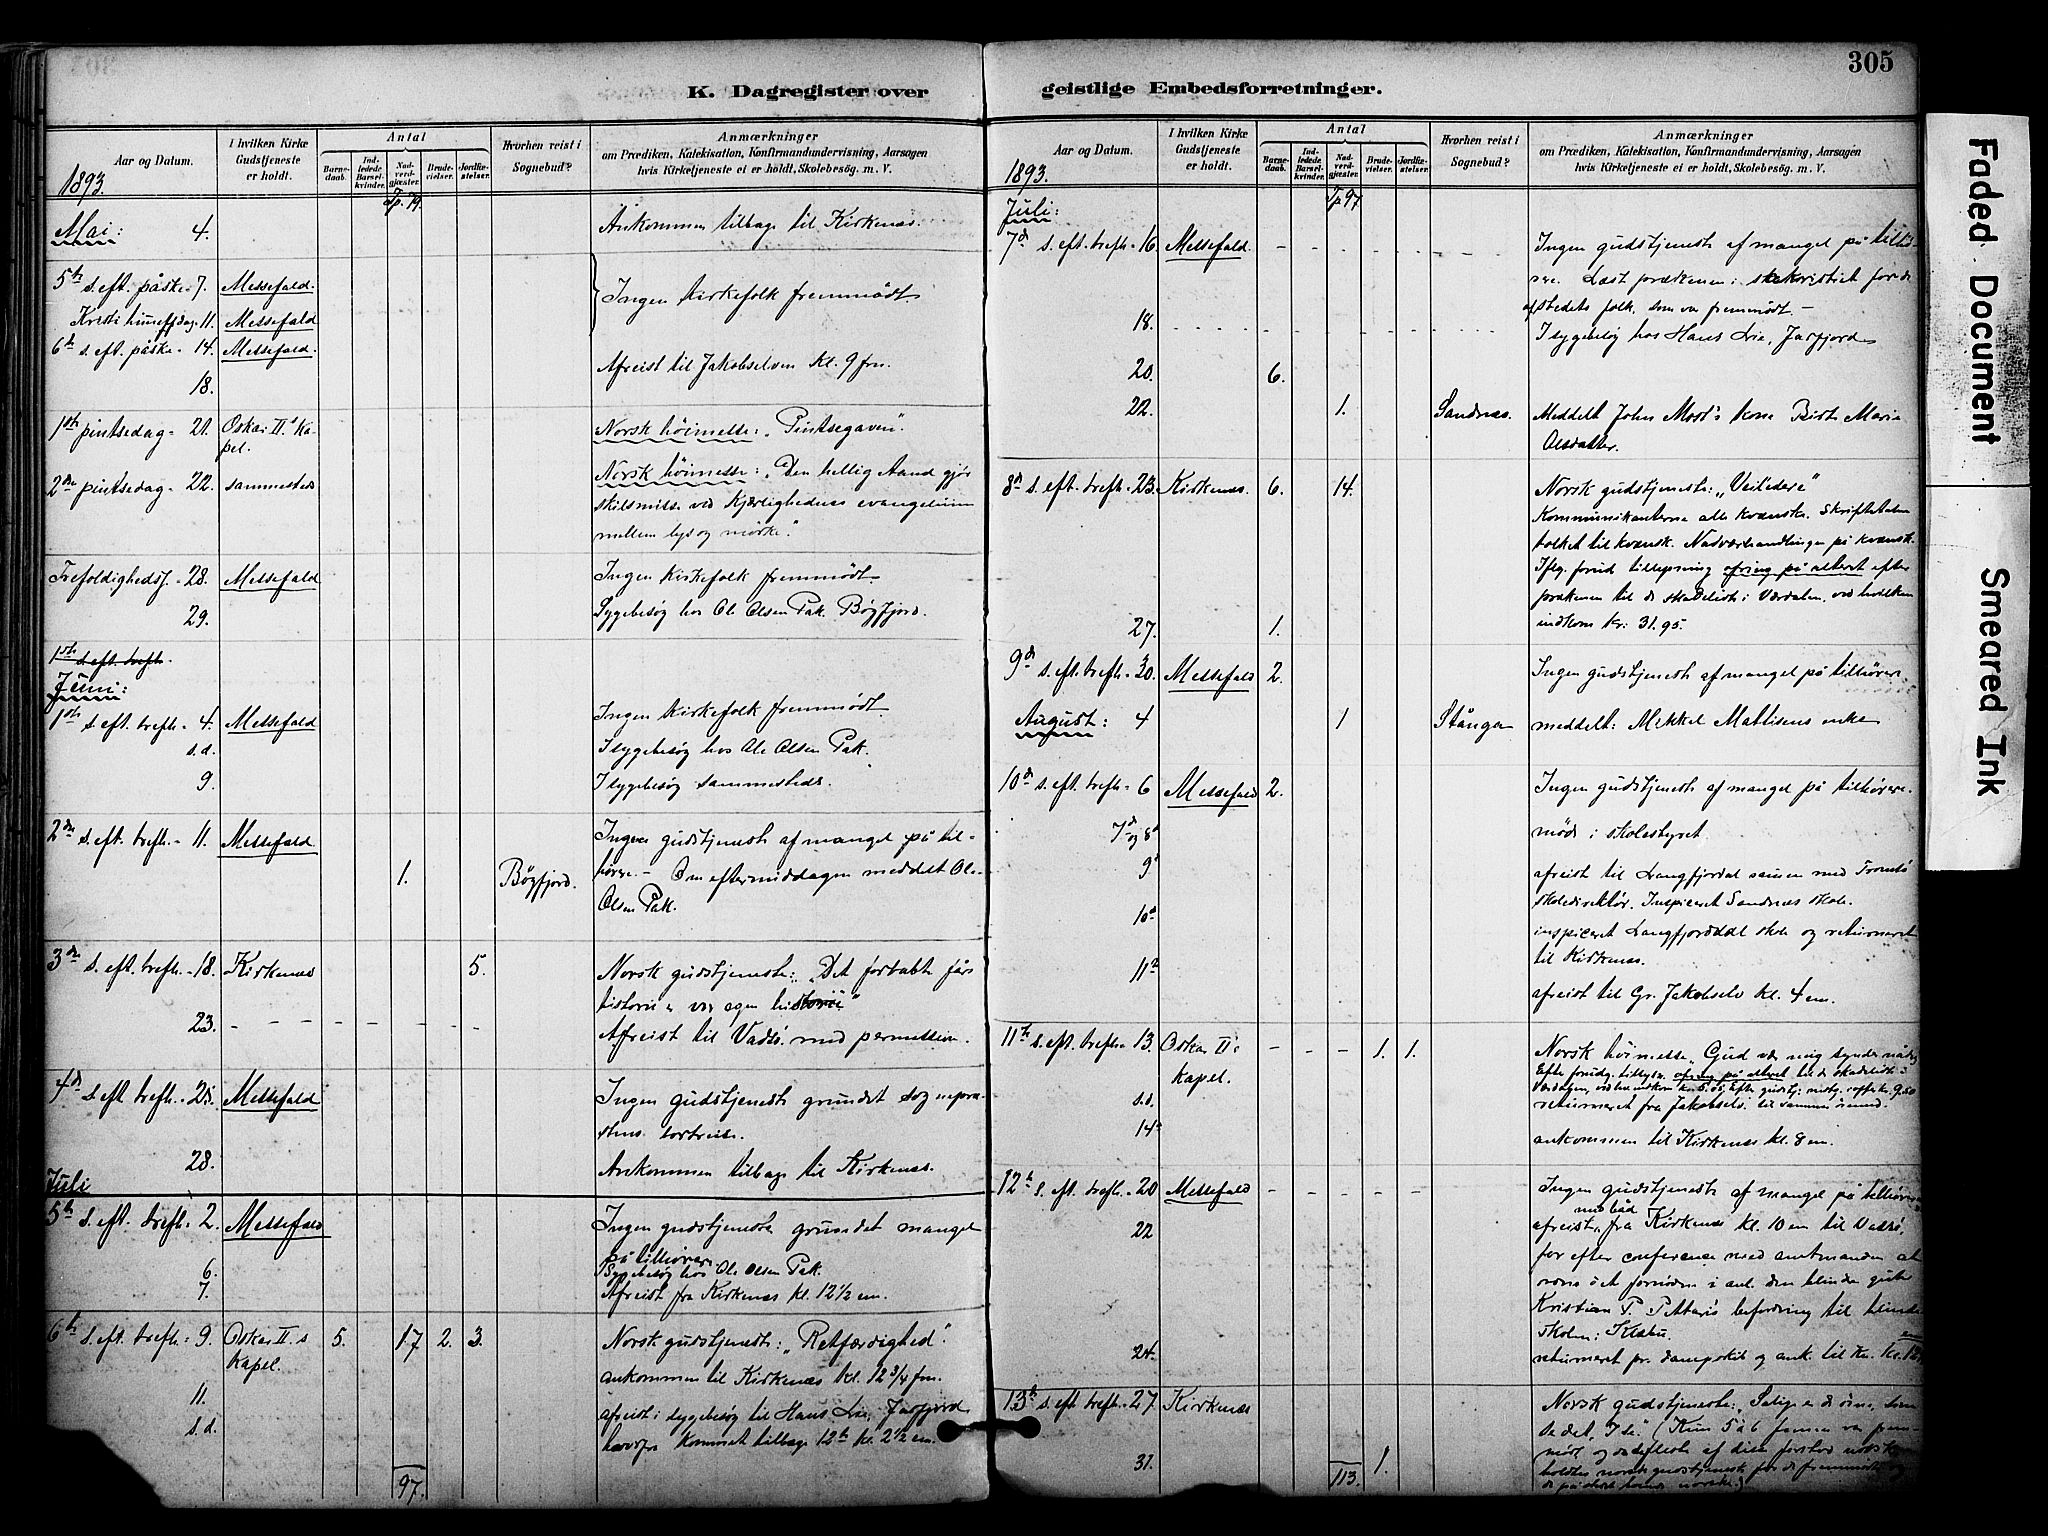 305
K. Dagregister over
geistlige Embedsforretninger.
Aar og Datum.
I hvilken Kirke
Gudstjeneste
er holdt.
Antal
Barne-
daab.
Ind-
ledede
Barsel-
kvinder.
Nad-
verd-
gjæster.
Brude-
vielser.
Jordfæ-
stelser.
Hvorhen reist i
Sognebud?
Anmærkninger
om Prædiken, Katekisation, Konfirmandundervisning, Aarsagen
hvis Kirketjeneste ei er holdt, Skolebesøg. m. V.
1893.
Tp. 79.
Mai: 4. Ankommen tilbage til Kirkenæs.
5te s. eft. påske 7. Messefald. Ingen kirkefolk fremmødt
Kristi himelfdag 11. Messefald
6te s. eft. påske 14. Messefald.
18. Afreist til Jakobselven kl. 9 fm.
1ste pintsedag 21. Oskar II.s Ka- Norsk höimesse: "Pintsegaven".
pel.
2den pintsedag 22. sammesteds Norsk höimesse: "Den hellig Aand gjör
skilsmisse ved Kjærlighedens evangelium
mellem lys og mörke."
Trefoldighedsf. 28. Messefald Ingen kirkefolk fremmødt
29. Sygebesøg hos Ole Olsen Pak. Bøgfjord.
1ste s. eft. trefh.
Juni:
1ste s. eft. trefh. 4. Messefald Ingen kirkefolk fremmødt.
s.d. I sygebesøg hos Ole Olsen Pak.
9. I sygebesøg sammesteds.
2den s. eft. trefh. 11. Messefald Ingen gudstjeneste af mangel på til-
1. Bøgfjord. hörere. - Om eftermiddagen meddelt Ole
Olsen Pak.
3die s. eft. trefh. 18. Kirkenæs 5. Norsk gudstjeneste: "Det fortabte fårs
historie er vor egen historie"
23. Afreist til Vadsö med permission.
4de s. eft trefh. 25. Messefald Ingen gudstjeneste grundet sognepræ-
stens bortreise.
28. Ankommen tilbage til Kirkenæs.
Juli
5te s. eft. trefh. 2. Messefald Ingen gudstjeneste grundet mangel
på tilhørere.
6. Sygebesøg hos Ole Olsen Pak.
7. Afreist fra Kirkenæs kl. 12 1/2 em.
6te s. eft. trefh. 9. Oskar II.s 5. 17 2. 3. Norsk gudstjeneste: "Retfærdighed".
Kapel.
11. ankommen til Kirkenæs kl. 12 3/4 fm.
s.d. afreist i sygebesøg til Hans Lie, Jarfjord
hvorfra kommet tilbage 12te kl. 2 1/2 em.
97.
Aar og Datum.
I hvilken Kirke
Gudstjeneste
er holdt.
Antal
Barne-
daab.
Ind-
ledede
Barsel-
kvinder.
Nad-
verd-
gjæster.
Brude-
vielser.
Jordfæ-
stelser.
Hvorhen reist i
Sognebud?
Anmærkninger
om Prædiken, Katekisation, Konfirmandundervisning, Aarsagen
hvis Kirketjeneste ei er holdt, Skolebesøg. m. V.
1893.
Tp 97
Juli:
7de s. eft. trefh. 16. Messefald. Ingen gudstjeneste af mangel på tilhö-
rere. Læst prædkenen i for de
af stedets folk, som var fremmødt. -
18. I sygebesøg hos Hans Lie, Jarfjord
20. 6.
22. 1. Sandnæs. Meddelt John Mort's kone Birte Marie
Olsdatter.
8de s. eft. trefh. 23. Kirkenæs. 6. 14. Norsk gudstjeneste: "Veiledere"
Kommunikanterne alle kvænske. Skriftetalen
tolket til kvænsk. Nadværhandlingen på kvænsk.
Iflg. forud tillysning ofring på alteret efter
prækenen til de skadelidte i Værdalen, ved hvilken
27. 1. indkom kr: 31.95.
9de s. eft. trefh. 30. Messefald 2. Ingen gudstjeneste af mangel på tilhörere.
August: 4 1 Stångan meddelt: Mikkel Mathisens enke
10de s. eft. trefh. 6 Messefald 2. Ingen gudstjeneste af mangel på tilhörere.
7de og 8de möde i skolestyret.
9de afreist til Langfjordal sammen med Tromsö
skoledirektör. Inspiceret Sandnæs skole.
10de inspiceret Langfjorddal skole og returneret
til Kirkenæs.
11te afreist til Gr. Jakobselv kl. 4 em.
11te s. eft. trefh. 13. Oskar II's 1. 1. Norsk höimesse "Gud vær mig synder nådig
Kapel. Efter forudg. tillysn. ofring på alteret til de skadelidte i
Værdalen,
s.d. returneret fra Jakobselv
14de ankommen til Kirkenæs kl. 8 em.
12te s. eft. trefh. 20 Messefald Ingen gudstjeneste af mangel på tilhörere
22 afreist med båd fra Kirkenæs kl. 10 em til Vadsö,
for efter conference med amtmanden at
ordne det fornödne i anl. den blinde gut
Kristian P. Petteris befordring til blinde-
skolen i Klæbu.
24. returneret pr. dampskib og ank. til Kn. kl. 12 em
13de s. eft trefh. 27. Kirkenæs Norsk gudstjeneste: "Salige er de öine, som
se det, I se." (Kun 5 à 6 finner var frem-
mødt og da de fleste af disse forstod norsk
31. 1. holdtes norsk gudstjeneste for de fremmødte
113.
Faded Document
Smeared Ink